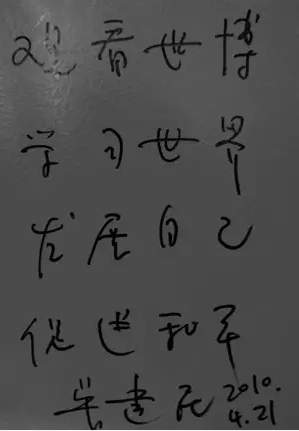 看世博
学习世界
发展自己
促进和平
2010.
4.21